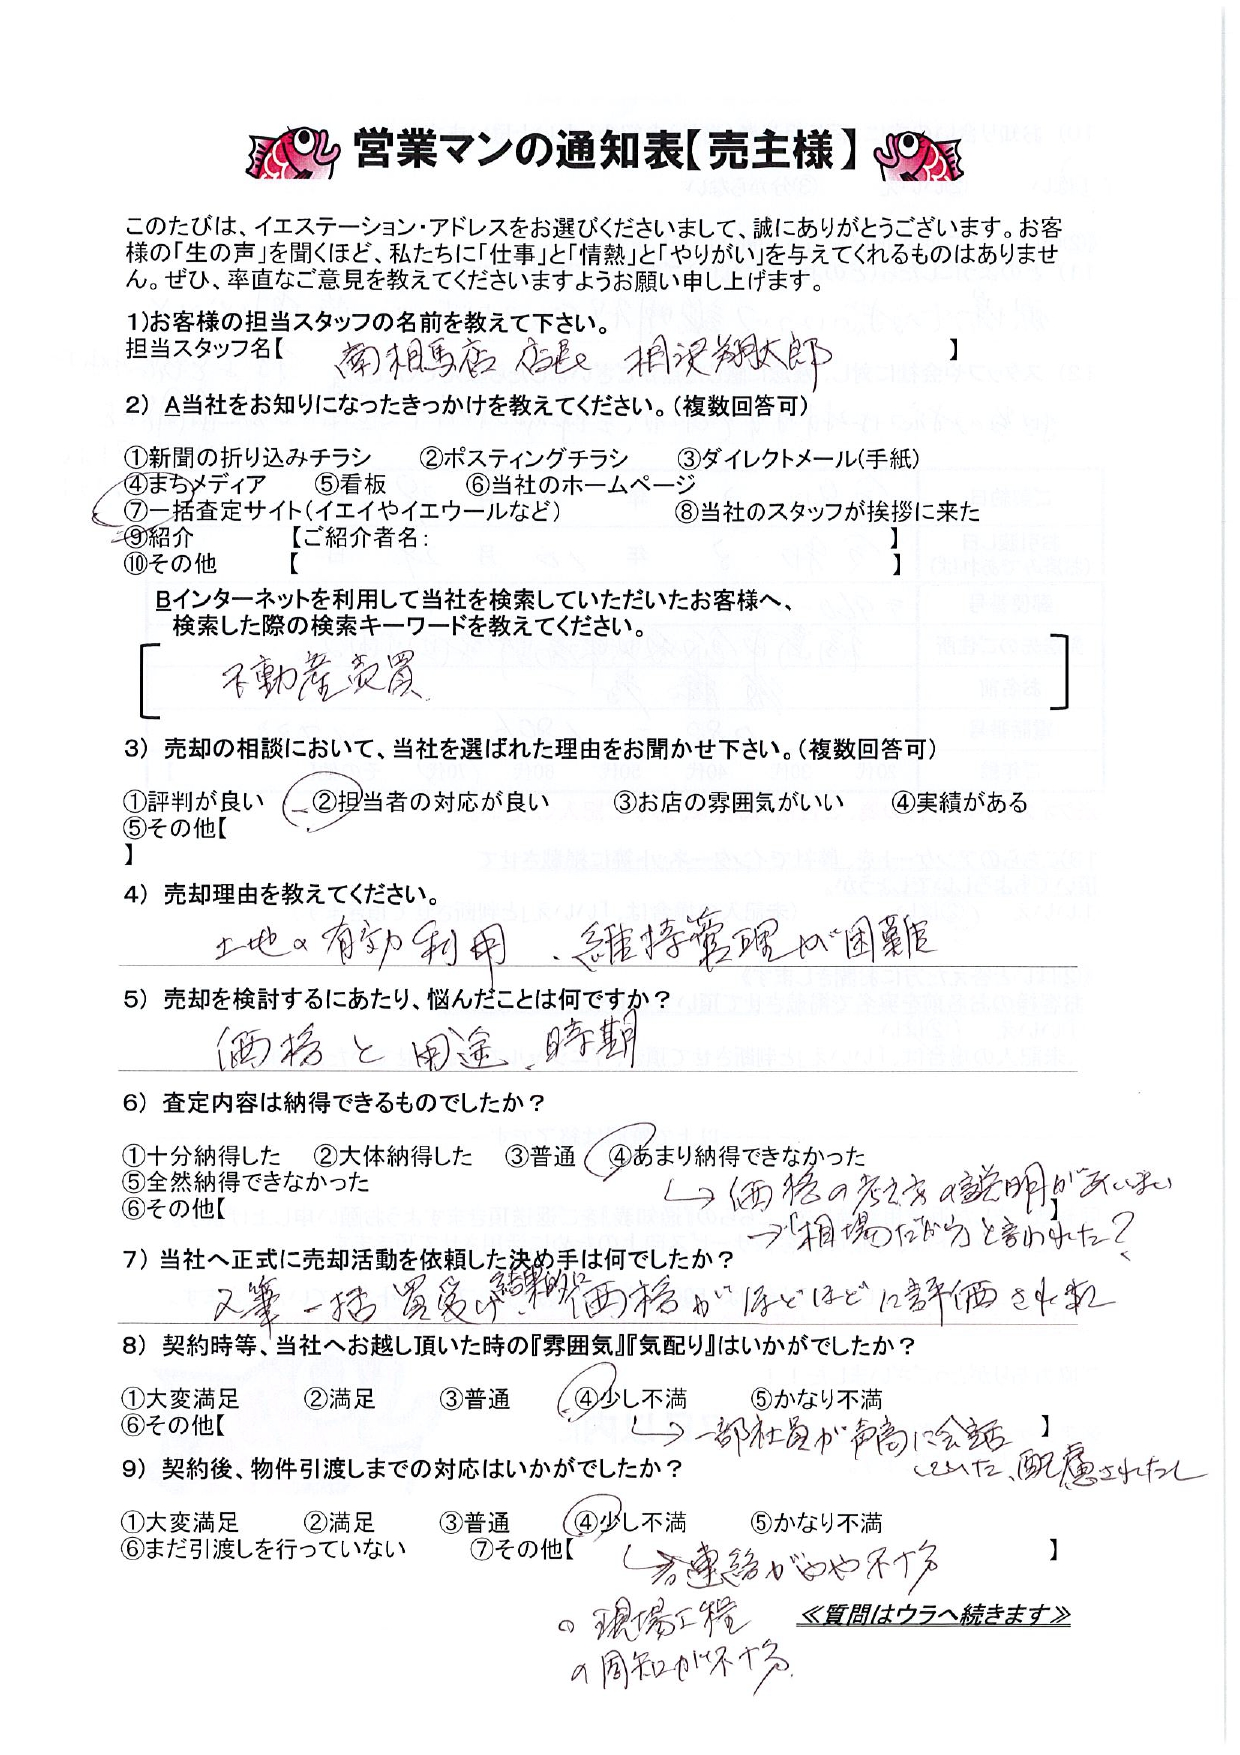 営業マンの通知表【売主様】
このたびは、イエステーション・アドレスをお選びくださいまして、誠にありがとうございます。お客
様の「生の声」を聞くほど、私たちに「仕事」と「情熱」と「やりがい」を与えてくれるものはありませ
ん。ぜひ、率直なご意見を教えてくださいますようお願い申し上げます。
1)お客様の担当スタッフの名前を教えて下さい。
担当スタッフ名【 南相馬店 店長 相沢翔太郎 】
2) A当社をお知りになったきっかけを教えてください。（複数回答可）
①新聞の折り込みチラシ ②ポスティングチラシ ③ダイレクトメール(手紙)
④まちメディア ⑤看板 ⑥当社のホームページ
⑦一括査定サイト(イエイやイエウールなど) ⑧当社のスタッフが挨拶に来た
⑨紹介 【ご紹介者名: 】
⑩その他 【 】
Bインターネットを利用して当社を検索していただいたお客様へ、
検索した際の検索キーワードを教えてください。
不動産売買
3) 売却の相談において、当社を選ばれた理由をお聞かせ下さい。（複数回答可）
①評判が良い ②担当者の対応が良い ③お店の雰囲気がいい ④実績がある
⑤その他【
】
4) 売却理由を教えてください。
土地の有効利用、維持管理が困難
5) 売却を検討するにあたり、悩んだことは何ですか？
価格と用途、時期
6) 査定内容は納得できるものでしたか？
①十分納得した ②大体納得した ③普通 ④あまり納得できなかった
⑤全然納得できなかった
→価格の考え方の説明があいまい
⑥その他【 】
→「相場だから」と言われた？
7) 当社へ正式に売却活動を依頼した決め手は何でしたか？
結果的に
2筆一括買受け、価格がほどほどに評価された
8) 契約時等、当社へお越し頂いた時の『雰囲気』『気配り』はいかがでしたか？
①大変満足 ②満足 ③普通 ④少し不満 ⑤かなり不満
⑥その他【 】
→一部社員が声高に会話
していた、配慮されたし
9) 契約後、物件引渡しまでの対応はいかがでしたか？
①大変満足 ②満足 ③普通 ④少し不満 ⑤かなり不満
⑥まだ引渡しを行っていない ⑦その他【 】
→連絡がやや不十分
≪質問はウラへ続きます≫
○現場工程
の周知が不十分